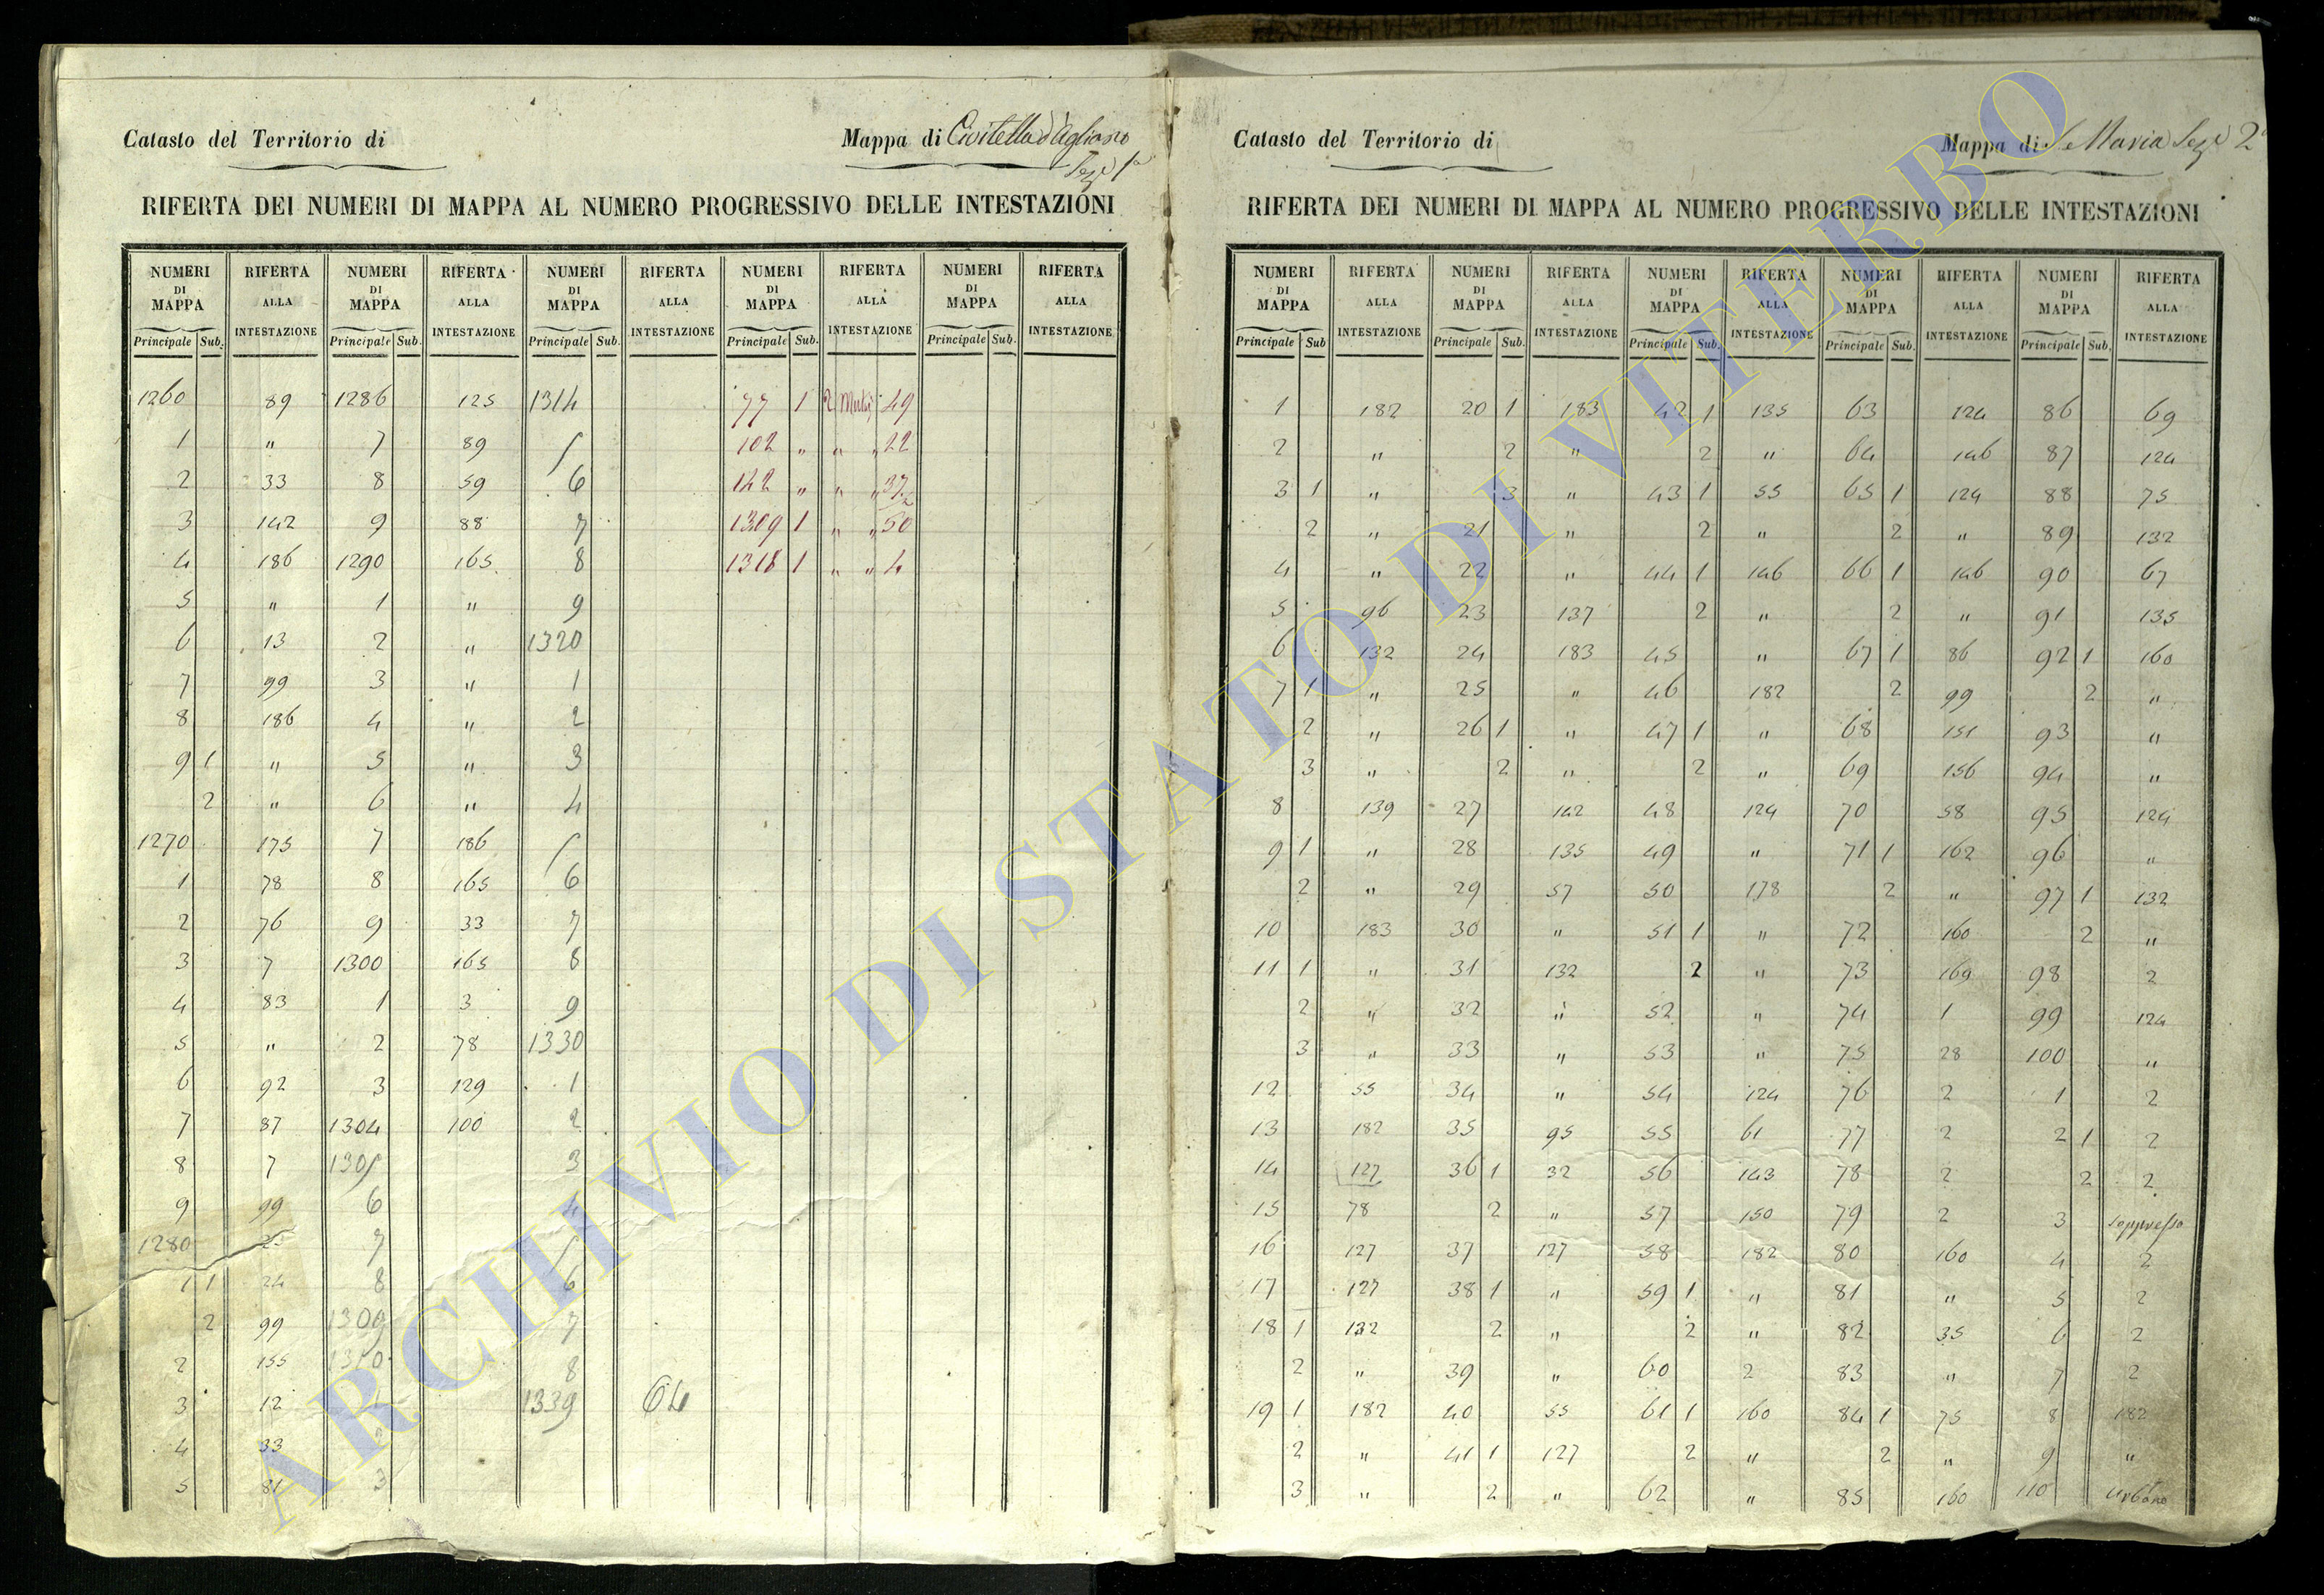 Catasto del Territorio di Mappa di Civitella d'Agliano
Sez.e 1a
RIFERTA DEI NUMERI DI MAPPA AL NUMERO PROGRESSIVO DELLE INTESTAZIONI
NUMERI RIFERTA NUMERI RIFERTA NUMERI RIFERTA NUMERI RIFERTA NUMERI RIFERTA
DI DI DI DI DI
MAPPA ALLA MAPPA ALLA MAPPA ALLA MAPPA ALLA MAPPA ALLA
INTESTAZIONE INTESTAZIONE INTESTAZIONE INTESTAZIONE INTESTAZIONE
Principale Sub. Principale Sub. Principale Sub. Principale Sub. Principale Sub.
1260 89 1286 125 1314 77 1 2 Mutaz 49
1 " 7 89 5 102 " " " 22
2 33 8 59 6 142 " " " 37
3 142 9 88 7 1309 1 " " 50
4 186 1290 165 8 1318 1 " " 4
5 " 1 " 9
6 13 2 " 1320
7 99 3 " 1
8 186 4 " 2
9 1 " 5 " 3
2 " 6 " 4
1270 175 7 186 5
1 78 8 165 6
2 76 9 33 7
3 7 1300 165 8
4 83 1 3 9
5 " 2 78 1330
6 92 3 129 1
7 87 1304 100 2
8 7 1305 3
9 99 6 4
1280 7 5
1 1 24 8 6
2 99 1309 7
2 155 1310 8
3 12 1339 64
4 33 2
5 81 3
Catasto del Territorio di Mappa di S. Maria Sez.e 2a
RIFERTA DEI NUMERI DI MAPPA AL NUMERO PROGRESSIVO DELLE INTESTAZIONI
NUMERI RIFERTA NUMERI RIFERTA NUMERI RIFERTA NUMERI RIFERTA NUMERI RIFERTA
DI DI DI DI DI
MAPPA ALLA MAPPA ALLA MAPPA ALLA MAPPA ALLA MAPPA ALLA
INTESTAZIONE INTESTAZIONE INTESTAZIONE INTESTAZIONE INTESTAZIONE
Principale Sub Principale Sub. Principale Sub. Principale Sub. Principale Sub.
1 182 20 1 183 42 1 135 63 124 86 69
2 " 2 " 2 " 64 146 87 124
3 1 " 3 " 43 1 55 65 1 124 88 75
2 " 21 " 2 " 2 " 89 132
4 " 22 " 44 1 146 66 1 146 90 67
5 96 23 137 2 " 2 " 91 135
6 132 24 183 45 " 67 1 86 92 1 160
7 1 " 25 " 46 182 2 99 2 "
2 " 26 1 " 47 1 " 68 151 93 "
3 " 2 " 2 " 69 156 94 "
8 139 27 142 48 124 70 58 95 124
9 1 " 28 135 49 " 71 1 162 96 "
2 " 29 57 50 178 2 " 97 1 132
10 183 30 " 51 1 " 72 160 2 "
11 1 " 31 132 2 " 73 169 98 2
2 " 32 " 52 " 74 1 99 124
3 " 33 " 53 " 75 28 100 "
12 55 34 " 54 124 76 2 1 2
13 182 35 95 55 61 77 2 2 1 2
14 127 36 1 32 56 143 78 2 2 2
15 78 2 " 57 150 79 2 3 soppresso
16 127 37 127 58 182 80 160 4 2
17 127 38 1 " 59 1 " 81 " 5 2
18 1 132 2 " 2 " 82 35 6 2
2 " 39 " 60 2 83 " 7 2
19 1 182 40 55 61 1 160 84 1 75 8 182
2 " 41 1 127 2 " 2 " 9 "
3 " 2 " 62 " 85 160 110 urbano
ARCHIVIO DI STATO DI VITERBO